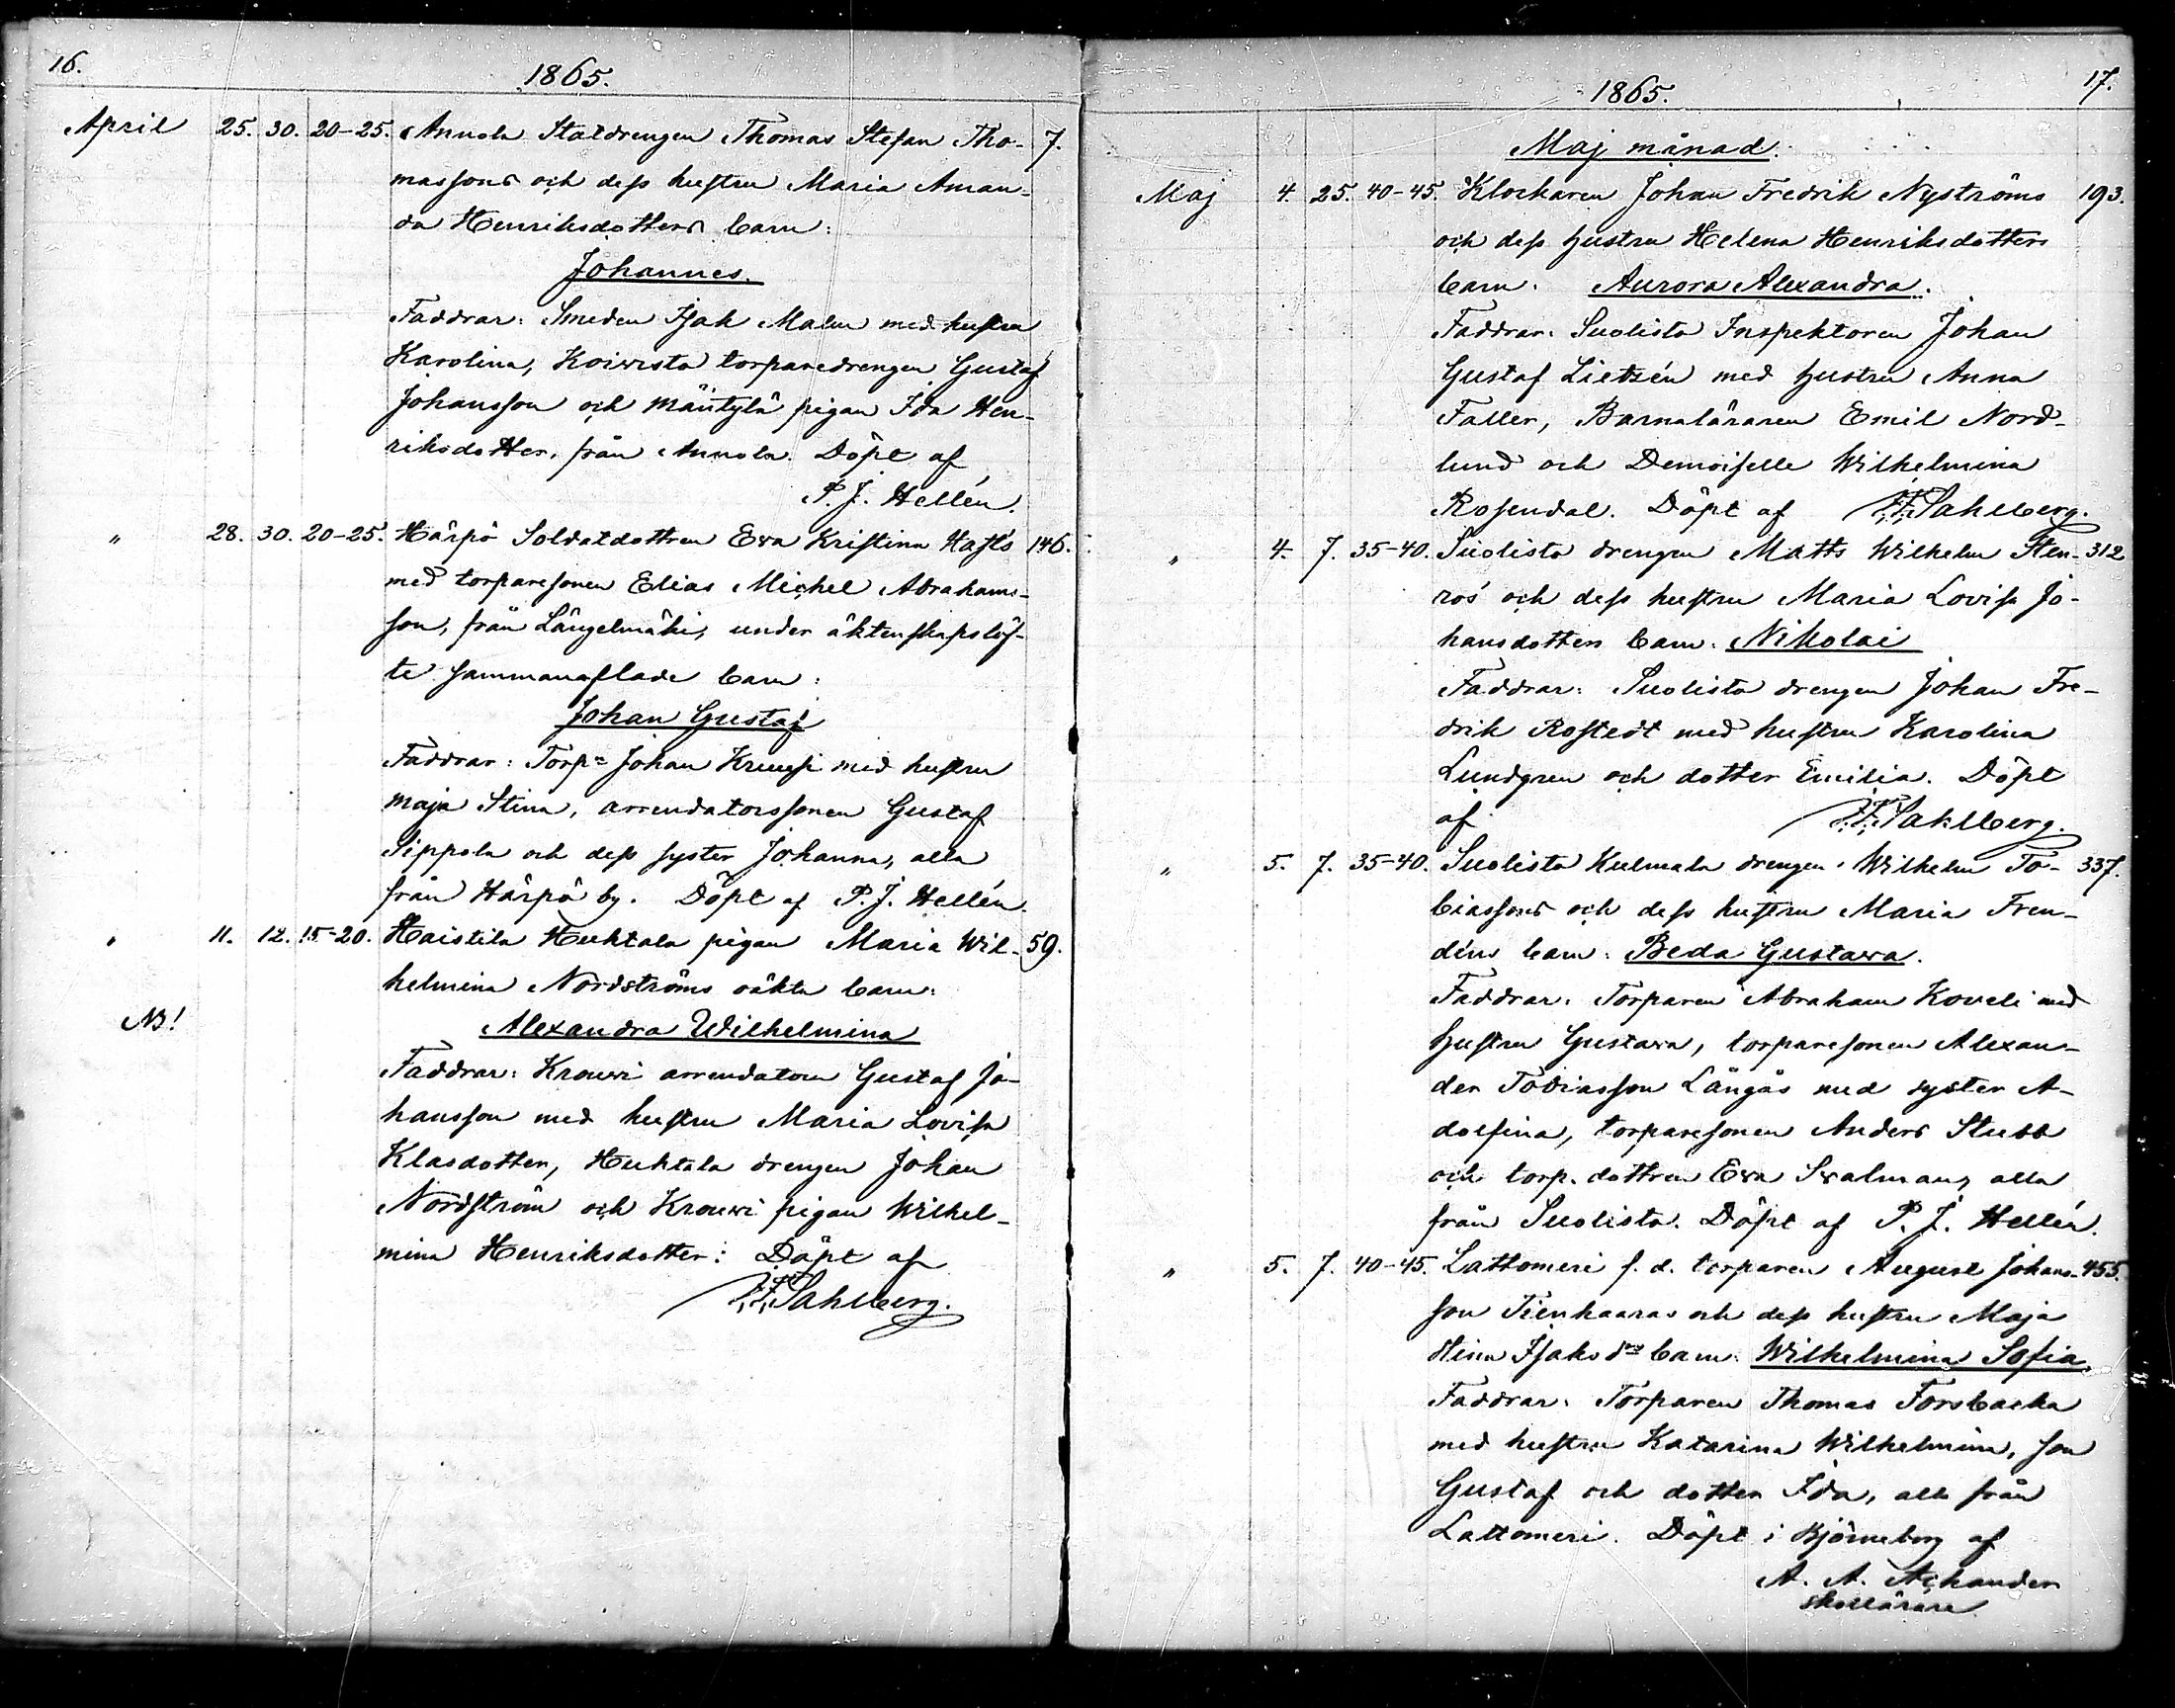 16.
1865.
April 25. 30. 20-25. Annola Statdrengen Thomas Stefan Tho- 7.
massons och dess hustru Maria Aman-
da Henriksdotters barn:
Johannes.
Faddrar: Smeden Isak Malm med hustru
Karolina, Koivisto torparedrengen Gustaf
Johansson och Mäntylä pigan Ida Hen-
riksdotter, från Annola. Döpt af
P. J. Hellén.
" 28. 30. 20-25. Härpö Soldatdottren Eva Kristina Hafts 146.
med torparesonen Elias Michel Abrahams-
son, från Längelmäki, under äktenskapslöf-
te sammanaflade barn:
Johan Gustaf
Faddrar: Torpn Johan Kruusi med hustru
Maja Stina, arrendatorssonen Gustaf
Sippola och dess syster Johanna, alla
från Härpö by. Döpt af P. J. Hellén.
" 11. 12. 15-20. Haistila Huktala pigan Maria Wil- 59.
helmina Nordströms oäkta barn:
NB! Alexandra Wilhelmina
Faddrar: Krouvi arrendatorn Gustaf Jo-
hansson med hustru Maria Lovisa
Klasdotter, Huktala drengen Johan
Nordström och Krouvi pigan Wilhel-
mina Henriksdotter: Döpt af
F. F. Sahlberg.
1865.
17.
Maj månad.
Maj 4. 25. 40-45. Klockaren Johan Fredrik Nyströms 193.
och dess hustru Helena Henriksdotters
barn: Aurora Alexandra.
Faddrar: Suolisto Inspektoren Johan
Gustaf Lietzén med hustru Anna
Faller, Barnaläraren Emil Nord-
lund och Demoiselle Wilhelmina
Rosendal. Döpt af F. F. Sahlberg.
" 4. 7. 35-40. Suolisto drengen Matts Wilhelm Sten- 312
ros' och dess hustru Maria Lovisa Jo-
hansdotters barn: Nikolai
Faddrar: Suolisto drengen Johan Fre-
drik Rostedt med hustru Karolina
Lundgren och dotter Emilia. Döpt
af F. F. Sahlberg.
" 5. 7. 35-40. Suolisto Kulmala drengen Wilhelm To- 337.
biassons och dess hustru Maria Fren-
déns barn: Beda Gustava.
Faddrar: Torparen Abraham Koveli med
hustru Gustava, torparesonen Alexan-
der Tobiasson Långås med syster A-
dolfina, torparesonen Anders Stubb
och torp. dottren Eva Svalman, alla
från Suolisto. Döpt af P. J. Hellén.
" 5. 7. 40-45. Lattomeri f. d. torparen August Johans- 455.
son Tienhaaras och dess hustru Maja
Stina Isaks drs barn: Wilhelmina Sofia.
Faddrar: Torparen Thomas Forsbacka
med hustru Katarina Wilhelmina, son
Gustaf och dotter Ida, alla från
Lattomeri. Döpt i Björneborg af
A. A. Achander
skollärare